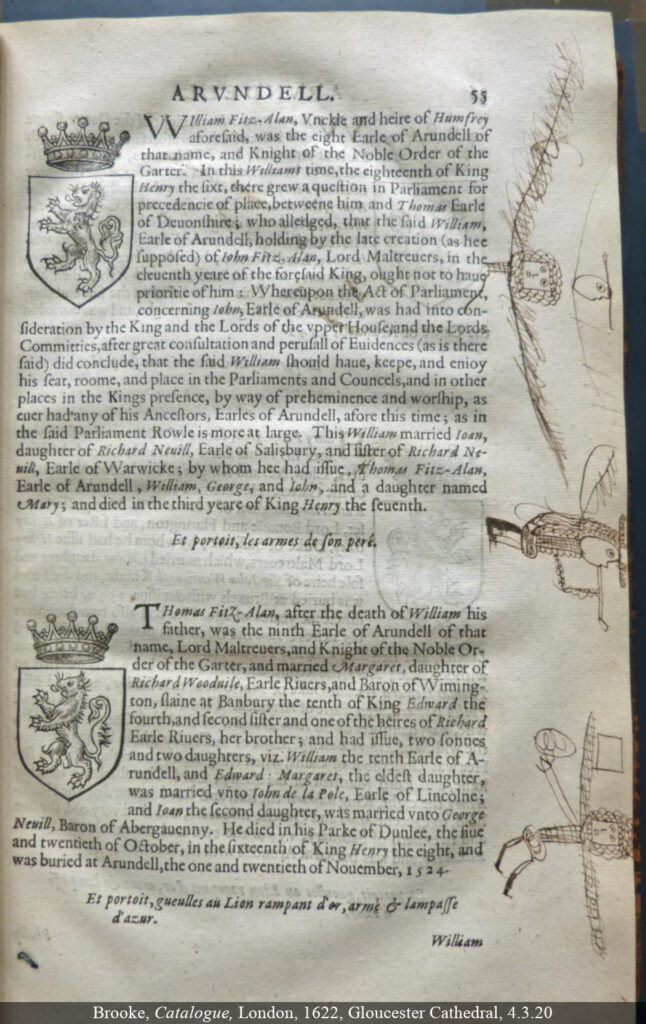 ARVNDELL.
55
WIlliam Fitz-Alan, Vnckle and heire of Humfrey
aforesaid, was the eight Earle of Arundell of
that name, and Knight of the Noble Order of the
Garter. In this Williams time, the eighteenth of King
Henry the sixt, there grew a question in Parliament for
precedencie of place, betweene him and Thomas Earle
of Deuonshire; who alledged, that the said William,
Earle of Arundell, holding by the late creation (as hee
supposed) of Iohn Fitz-Alan, Lord Maltreuers, in the
eleuenth yeare of the foresaid King, ought not to haue
prioritie of him : Whereupon the Act of Parliament,
concerning Iohn, Earle of Arundell, was had into con-
sideration by the King and the Lords of the vpper House, and the Lords
Committies, after great consultation and perusall of Euidences (as is there
said) did conclude, that the said William should haue, keepe, and enioy
his seat, roome, and place in the Parliaments and Councels, and in other
places in the Kings presence, by way of preheminence and worship, as
euer had any of his Ancestors, Earles of Arundell, afore this time; as in
the said Parliament Rowle is more at large. This William married Ioan,
daughter of Richard Neuill, Earle of Salisbury, and sister of Richard Ne-
uill, Earle of Warwicke; by whom hee had issue, Thomas Fitz-Alan,
Earle of Arundell, William, George, and Iohn, and a daughter named
Mary; and died in the third yeare of King Henry the seuenth.
Et portoit, les armes de son peré.
THomas Fitz-Alan, after the death of William his
father, was the ninth Earle of Arundell of that
name, Lord Maltreuers, and Knight of the Noble Or-
der of the Garter, and married Margaret, daughter of
Richard Wooduile, Earle Riuers, and Baron of Wiming-
ton, slaine at Banbury the tenth of King Edward the
fourth, and second sister and one of the heires of Richard
Earle Riuers, her brother; and had issue, two sonnes
and two daughters, viz. William the tenth Earle of A-
rundell, and Edward. Margaret, the eldest daughter,
was married vnto Iohn de la Pole, Earle of Lincolne;
and Ioan the second daughter, was married vnto George
Neuill, Baron of Abergauenny. He died in his Parke of Dunlee, the fiue
and twentieth of October, in the sixteenth of King Henry the eight, and
was buried at Arundell, the one and twentieth of Nouember, 1524.
Et portoit, gueulles au Lion rampant d'or, armé & lampasse
d'azur.
William
Brooke, Catalogue, London, 1622, Gloucester Cathedral, 4.3.20